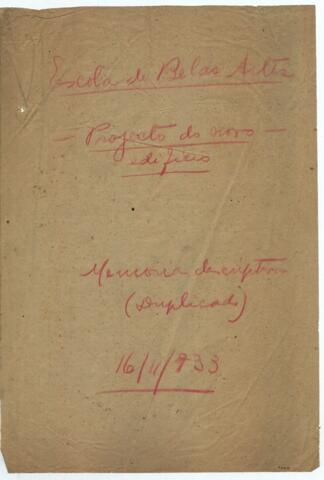 Escola de Belas Artes
— Projecto do novo —
edificio
Memoria descriptiva
(Duplicado)
16/11/933